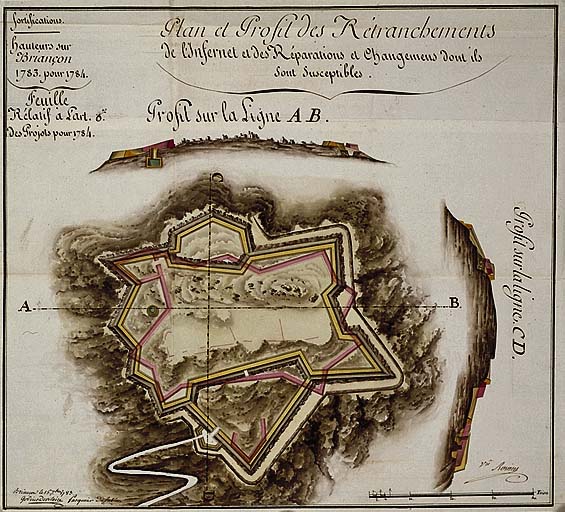 fortifications.
hauteurs sur
Briançon
1783. pour 1784.
Feuille
Rélatif à L'art. 8.e
des Projets pour 1784.
Plan et Profil des Rétranchements
de l'Infernet et des Réparations et Changemens dont ils
sont susceptibles.
Profil sur la Ligne A B.
A
B.
Profil sur la ligne. C D.
Briançon le